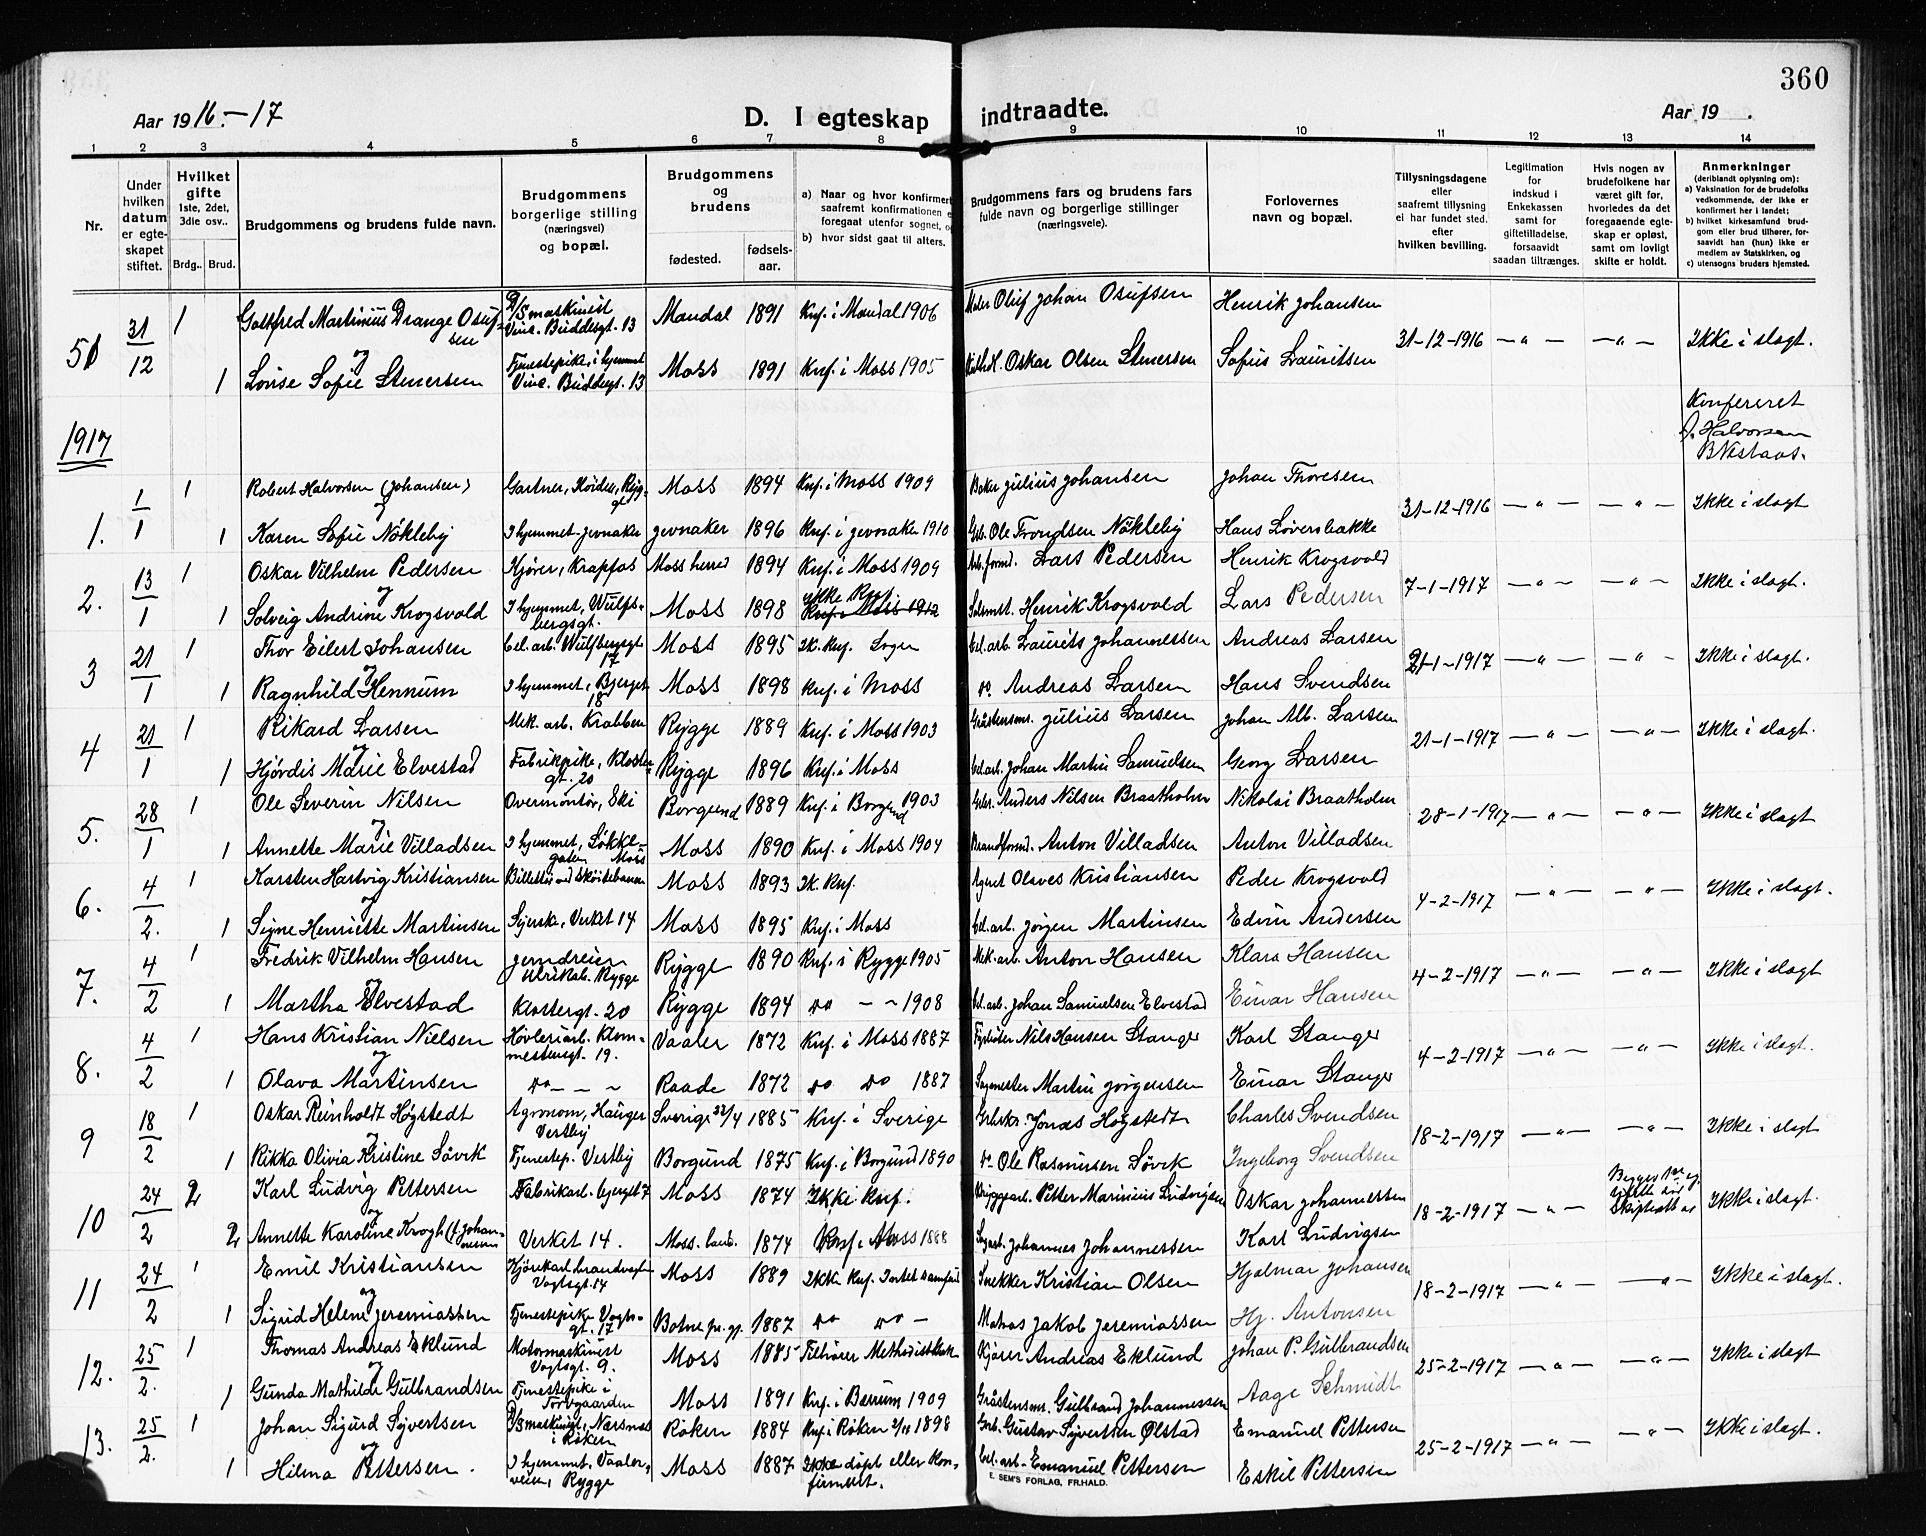 360
Aar 1916.-17
D. I egteskap indtraadte.
Aar 19 .
1 2 3 4 5 6 7 8 9 10 11 12 13 14
Nr.
Under hvilken datum er egteskapet stiftet.
Hvilket gifte 1ste, 2det, 3die osv..
Brdg.. Brud.
Brudgommens og brudens fulde navn.
Brudgommens borgerlige stilling (næringsvei) og bopæl.
Brudgommens og brudens
fødested. fødselsaar.
a) Naar og hvor konfirmert
saafremt konfirmationen e
foregaat utenfor sognet, o
b) hvor sidst gaat til alters.
Brudgommens fars og brudens fars fulde navn og borgerlige stillinger (næringsveie).
Forlovernes navn og bopæl.
Tillysningsdagene eller saafremt tillysning ei har fundet sted. efter hvilken bevilling.
Legitimation for indskud i Enkekassen samt for giftetilladelse, forsaavidt saadan tiltrænges.
Hvis nogen av brudefolkene har været gift før, hvorledes da det foregaaende egteskap er opløst, samt om lovligt skifte er holdt.
Anmerkninger
(deriblandt oplysning om):
a) Vaksination for de brudefolks vedkommende, der ikke er konfirmert her i landet;
b) hvilket kirkesamfund brudgom eller brud tilhører, forsaavidt han (hun) ikke er medlem av Statskirken, og
c) utensogns bruders hjemsted.
51 31/12 1 Gottfred Martinius Drange Osufsen D/Smaskinist Vinc. Buddesgt. 13 Mandal 1891 Knf. i Mandal 1906 Maler Oluf Johan Osufsen Henrik Johansen 31-12-1916 —„— —„— Ikke i slegt.
og
1 Lovise Sofie Stenersen Tjenestepike, i hjemmet Vinc. Buddesgt. 13 Moss 1891 Knf. i Moss 1905 Oskar Olsen Stenersen Sofus Lauritsen
Konfereret
A. Halvorsen
1917
1. 1/1 1 Robert Halvorsen (Johansen) Gartner, Høiden, Rygge Moss 1894 Knf. i Moss 1909 Baker Julius Johansen Johan Thoresen 31-12-1916 —„— —„— Ikke i slegt
og
1 Karen Sofie Nökleby I hjemmet Jevnaker Jevnaker 1896 Knf. i Jevnaker 1910 Grb. Ole Trondsen Nökleby Hans Løversbakke
2. 13/1 1 Oskar Vilhelm Pedersen Kjører, Krapfos Moss herred 1894 Knf. i Moss 1909 Arb.formd. Lars Pedersen Henrik Krogsvold 7-1-1917 —„— —„— Ikke i slegt.
og
1 Solveig Andrine Krogsvold I hjemmet, Wulfsbergsgt. Moss 1898 ikke Knf. Knf. i Moss 1912 Salemst. Henrik Krogsvold Lars Pedersen
3 21/1 1 Thor Eilert Johansen Cel. arb. Wulfsbergsgt 17 Moss 1895 Ik. Knf. Logen Cel. arb. Laurits Johannessen Andreas Larsen 21-1-1917 —„— —„— Ikke i slegt.
og
1 Ragnhild Hennum I hjemmet, Bjerget 18 Moss 1898 Knf. i Moss do Andreas Larsen Hans Svendsen
4 21/1 1 Rikard Larsen Mek. arb. Krabben Rygge 1889 Knf. i Moss 1903 Gråstensms. Julius Larsen Johan Alb. Larsen 21-1-1917 —„— —„— Ikke i slegt.
og
1 Hjördis Marie Elvestad Fabrikpike, Klostergt. 20 Rygge 1896 Knf. i Moss Cel. arb. Johan Martin Samuelsen Georg Larsen
5. 28/1 1 Ole Severin Nilsen Overmontør, Ski Borgund 1889 Knf. i Borgund 1903 Gbr. Anders Nilsen Braatholm Nikolai Braatholm 28-1-1917 —„— —„— Ikke i slegt
og
1 Annette Marie Villadsen I hjemmet, Løkkegaten Moss Moss 1890 Knf. i Moss 1904 Brandformd. Anton Villadsen Anton Villadsen
6. 4/2. 1 Karsten Hartvig Kristiansen Billettør ved Skøitebanen Moss 1893 Ik. Knf. Agent Olaves Kristiansen Peder Krogsvold 4-2-1917 —„— —„— Ikke i slegt.
og
1 Signe Henriette Martinsen Syerske, Verket 14 Moss 1895 Knf. i Moss Cel. arb. Jørgen Martinsen Edvin Andersen
7. 4/2 1 Fredrik Vilhelm Hansen Jerndreier Ulrikab. Rygge Rygge 1890 Knf. i Rygge 1905 Mek. arb. Anton Hansen Klara Hansen 4-2-1917 —„— —„— Ikke i slegt
og
1 Martha Elvestad Klostergt. 20 Rygge 1894 do - - 1908 Cel. arb. Johan Samuelsen Elvestad Einar Hansen
8. 4/2 1 Hans Kristian Nielsen Høvleriarb. Klommestensgt. 19. Vaaler 1872 Knf. i Moss 1887 Fyrbøter Nils Hansen Stanger Karl Stanger 4-2-1917 —„— —„— Ikke i slegt.
og
1 Olava Martinsen do - - - Raade 1872 do do 1887 Sagmester Martin Jørgensen Einar Stanger
9 18/2 1 Oskar Reinholdt Høgstedt Agronom, Hauger Vestby Sverige 22/4 1885 Knf. i Sverige Jonas Høgstedt Charles Svendsen 18-2-1917 —„— —„— Ikke i slegt
og
1 Rikka Olivia Kristine Sövik Tjenestep. Vestby Borgund 1875 Knf. i Borgund 1890 do Ole Rasmussen Sövik Ingeborg Svendsen
10 24/2 2 Karl Ludvig Pettersen Fabrikarb. Bjerget 7 Moss 1874 Ikke Knf. Bryggearb. Petter Marinius Ludvigsen Oskar Johannessen 18-2-1917 —„— Ikke i slegt.
og
2 Annette Karoline Krogh (f. Johannessen Verket 14. Moss. landd. 1874 Knf. i Moss 1888 Sagarb. Johannes Johannessen Karl Ludvigsen
11 24/2 1 Emil Kristiansen Vogtsgt. 14 Moss 1889 Ikke Knf. Snekker Kristian Olsen Hjalmar Johansen 18-2-1917 —„— —„— Ikke i slegt.
og
1 Sigrid Helene Jeremiassen Tjenestepike Vogtsgt. 17 Botne pr. gj. 1887 do do - Matros Jakob Jeremiassen Hj. Antonsen
12. 25/2. 1 Thomas Andreas Eklund Motormaskinist Vogtsgt. 9. Moss 1885 Tilhører Methodistkirk Kjører Andreas Eklund Johan P. Gulbrandsen 25-2-1917 —„— —„— Ikke i slegt
og
1 Gunda Mathilde Gulbrandsen Tjenestepike i Torvgaarden Moss 1891 Knf. i Bærum 1909 Gråstensms. Gulbrand Johannessen Aage Schmidt
13. 25/2. 1 Johan Sigurd Syvertsen D/Smaskinist, Nærsnes i Røken Røken 1884 Knf. i Røken 2/10 1898 Grb. Gustav Syvertsen Ølstad Emanuel Pettersen 25-2-1917 —„— —„— Ikke i slegt.
og
1 Hilma Pettersen. I hjemmet, Vaalerveien, Rygge Moss 1887 Ikke døpt eller konfirmert. Cel. arb. Emanuel Pettersen Eskil Pettersen
E. SEM'S FORLAG, FR.HALD.